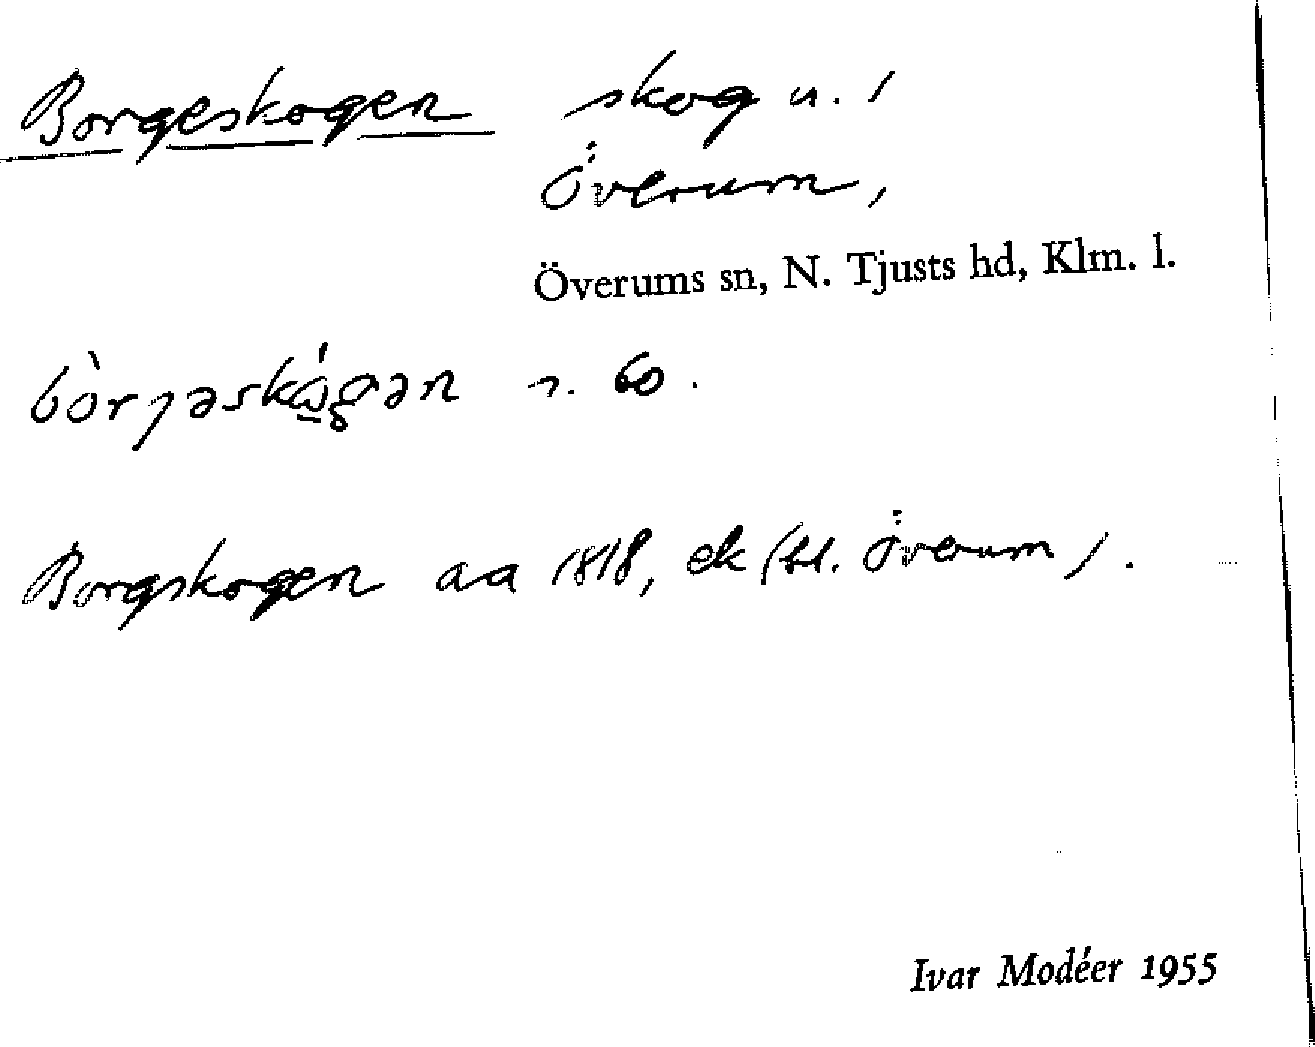 Borgeskogen skog u. /
Överum,
Överums sn, N. Tjusts hd, Klm. l.
s. 60.
Borgskogen aa 1818, ek (bl. Överum).
Ivar Modéer 1955